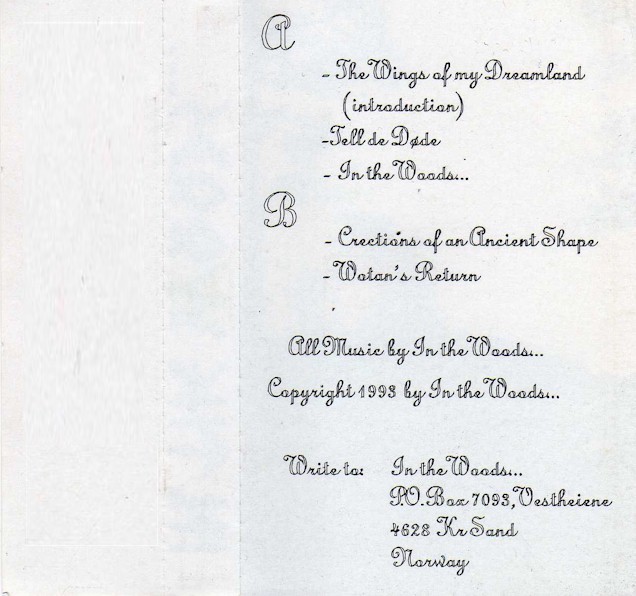 A
- The Wings of my Dreamland
(introduction)
-Tell de Døde
- In the Woods...
B
- Crections of an Ancient Shape
- Wotan's Return
All Music by In the Woods...
Copyright 1993 by In the Woods...
Write to: In the Woods...
P.O.Box 7093, Vestheiene
4628 Kr Sand
Norway